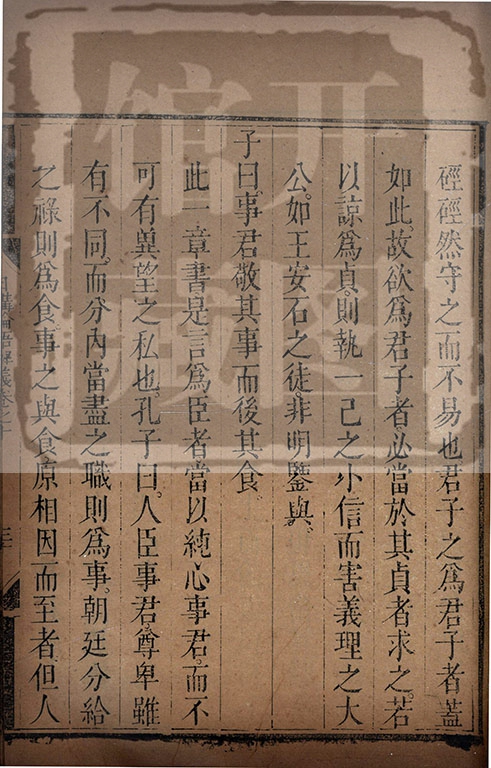 硜硜然守之而不易也君子之爲君子者蓋
如此故欲爲君子者必當於其貞者求之若
以諒爲貞則執一己之小信而害義理之大
公如王安石之徒非明鑒與
子曰事君敬其事而後其食
此一章書是言爲臣者當以純心事君而不
可有冀望之私也孔子曰人臣事君尊卑雖
有不同而分內當盡之職則爲事朝廷分給
之祿則爲食事之與食原相因而至者但人